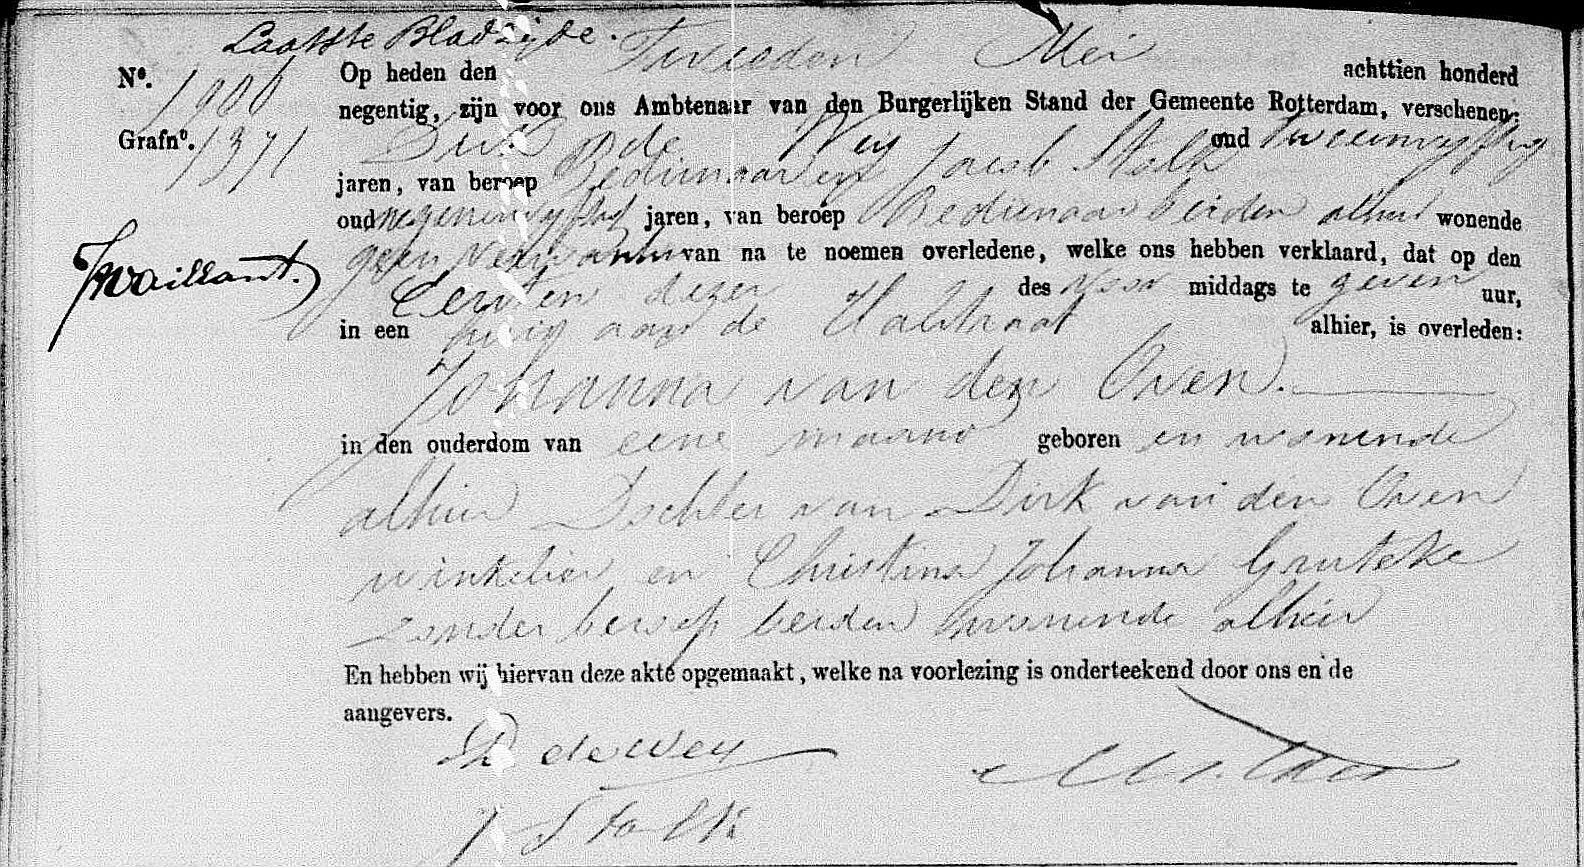 Laatste Bladzijde.
Tweeden Mei
Nº. 1906 Op heden den achttien honderd
negentig, zijn voor ons Ambtenaar van den Burgerlijken Stand der Gemeente Rotterdam, verschenen:
Grafnº. 1371 Dirk de Wey oud tweeenvyftig
jaren, van beroep Bedienaar en Jacob Stolk
oud negenenvyftig jaren, van beroep Bedienaar beiden alhier wonende
Jvaillant.
geen verwanten van na te noemen overledene, welke ons hebben verklaard, dat op den
Eersten dezer des voor middags te zeven uur,
in een huis aan de straat alhier, is overleden:
Johanna van den Oven.
in den ouderdom van eene maand geboren en wonende
alhier Dochter van Dirk van den Oven
winkelier en Christina Johanna Gruteke
zonder beroep beiden wonende alhier
En hebben wij hiervan deze akte opgemaakt, welke na voorlezing is onderteekend door ons en de
aangevers.
D de Wey
J Stolk